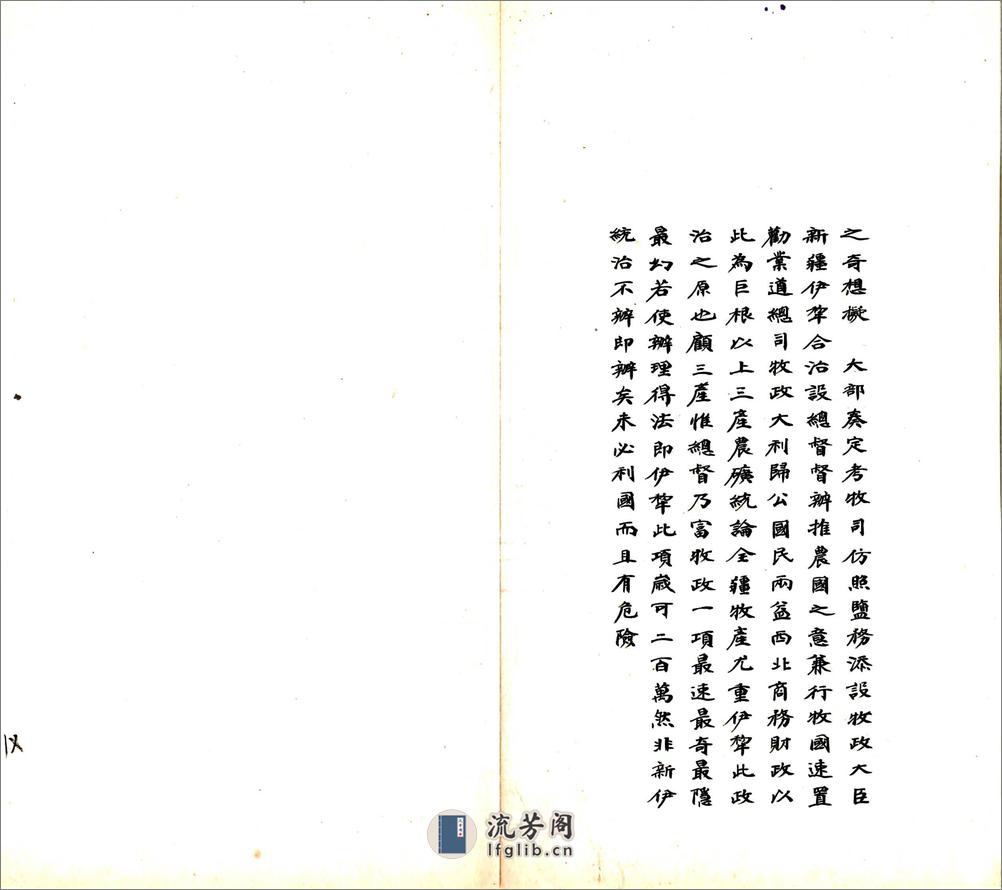 之奇想擬　大部奏定考牧司仿照鹽務添設牧政大臣
新疆伊犂合治設總督督辦推農國之意兼行牧國速置
勸業道總司牧政大利歸公國民兩益西北商務財政以
此為巨根以上三產農礦統論全疆牧產尤重伊犂此政
治之原也顧三產惟總督乃富牧政一項最速最奇最隱
最幻若使辦理得法即伊犂此項歲可二百萬然非新伊
統治不辦即辦矣未必利國而且有危險
流芳阁
lfglib.cn